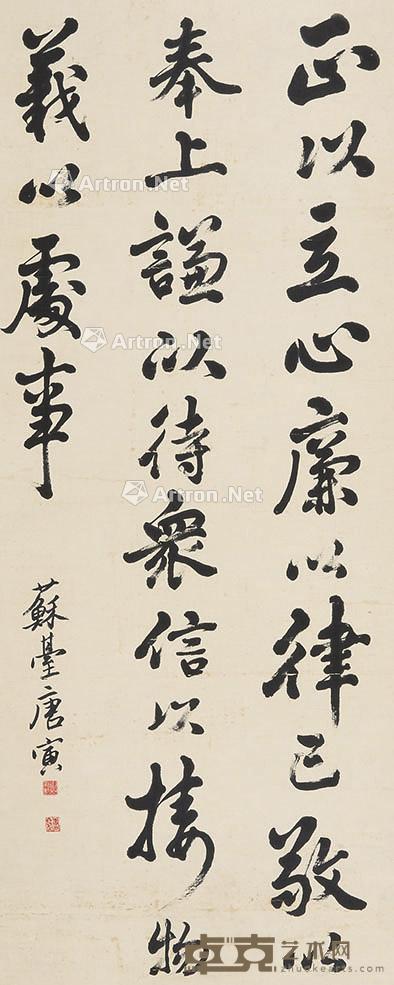 正以立心廉以律己敬以
奉上謙以待衆信以接物
義以處事
蘇臺唐寅
Artron.Net
Artron.Net
Artron.Net
Artron.Net
卓克艺术网
zhuokearts.com